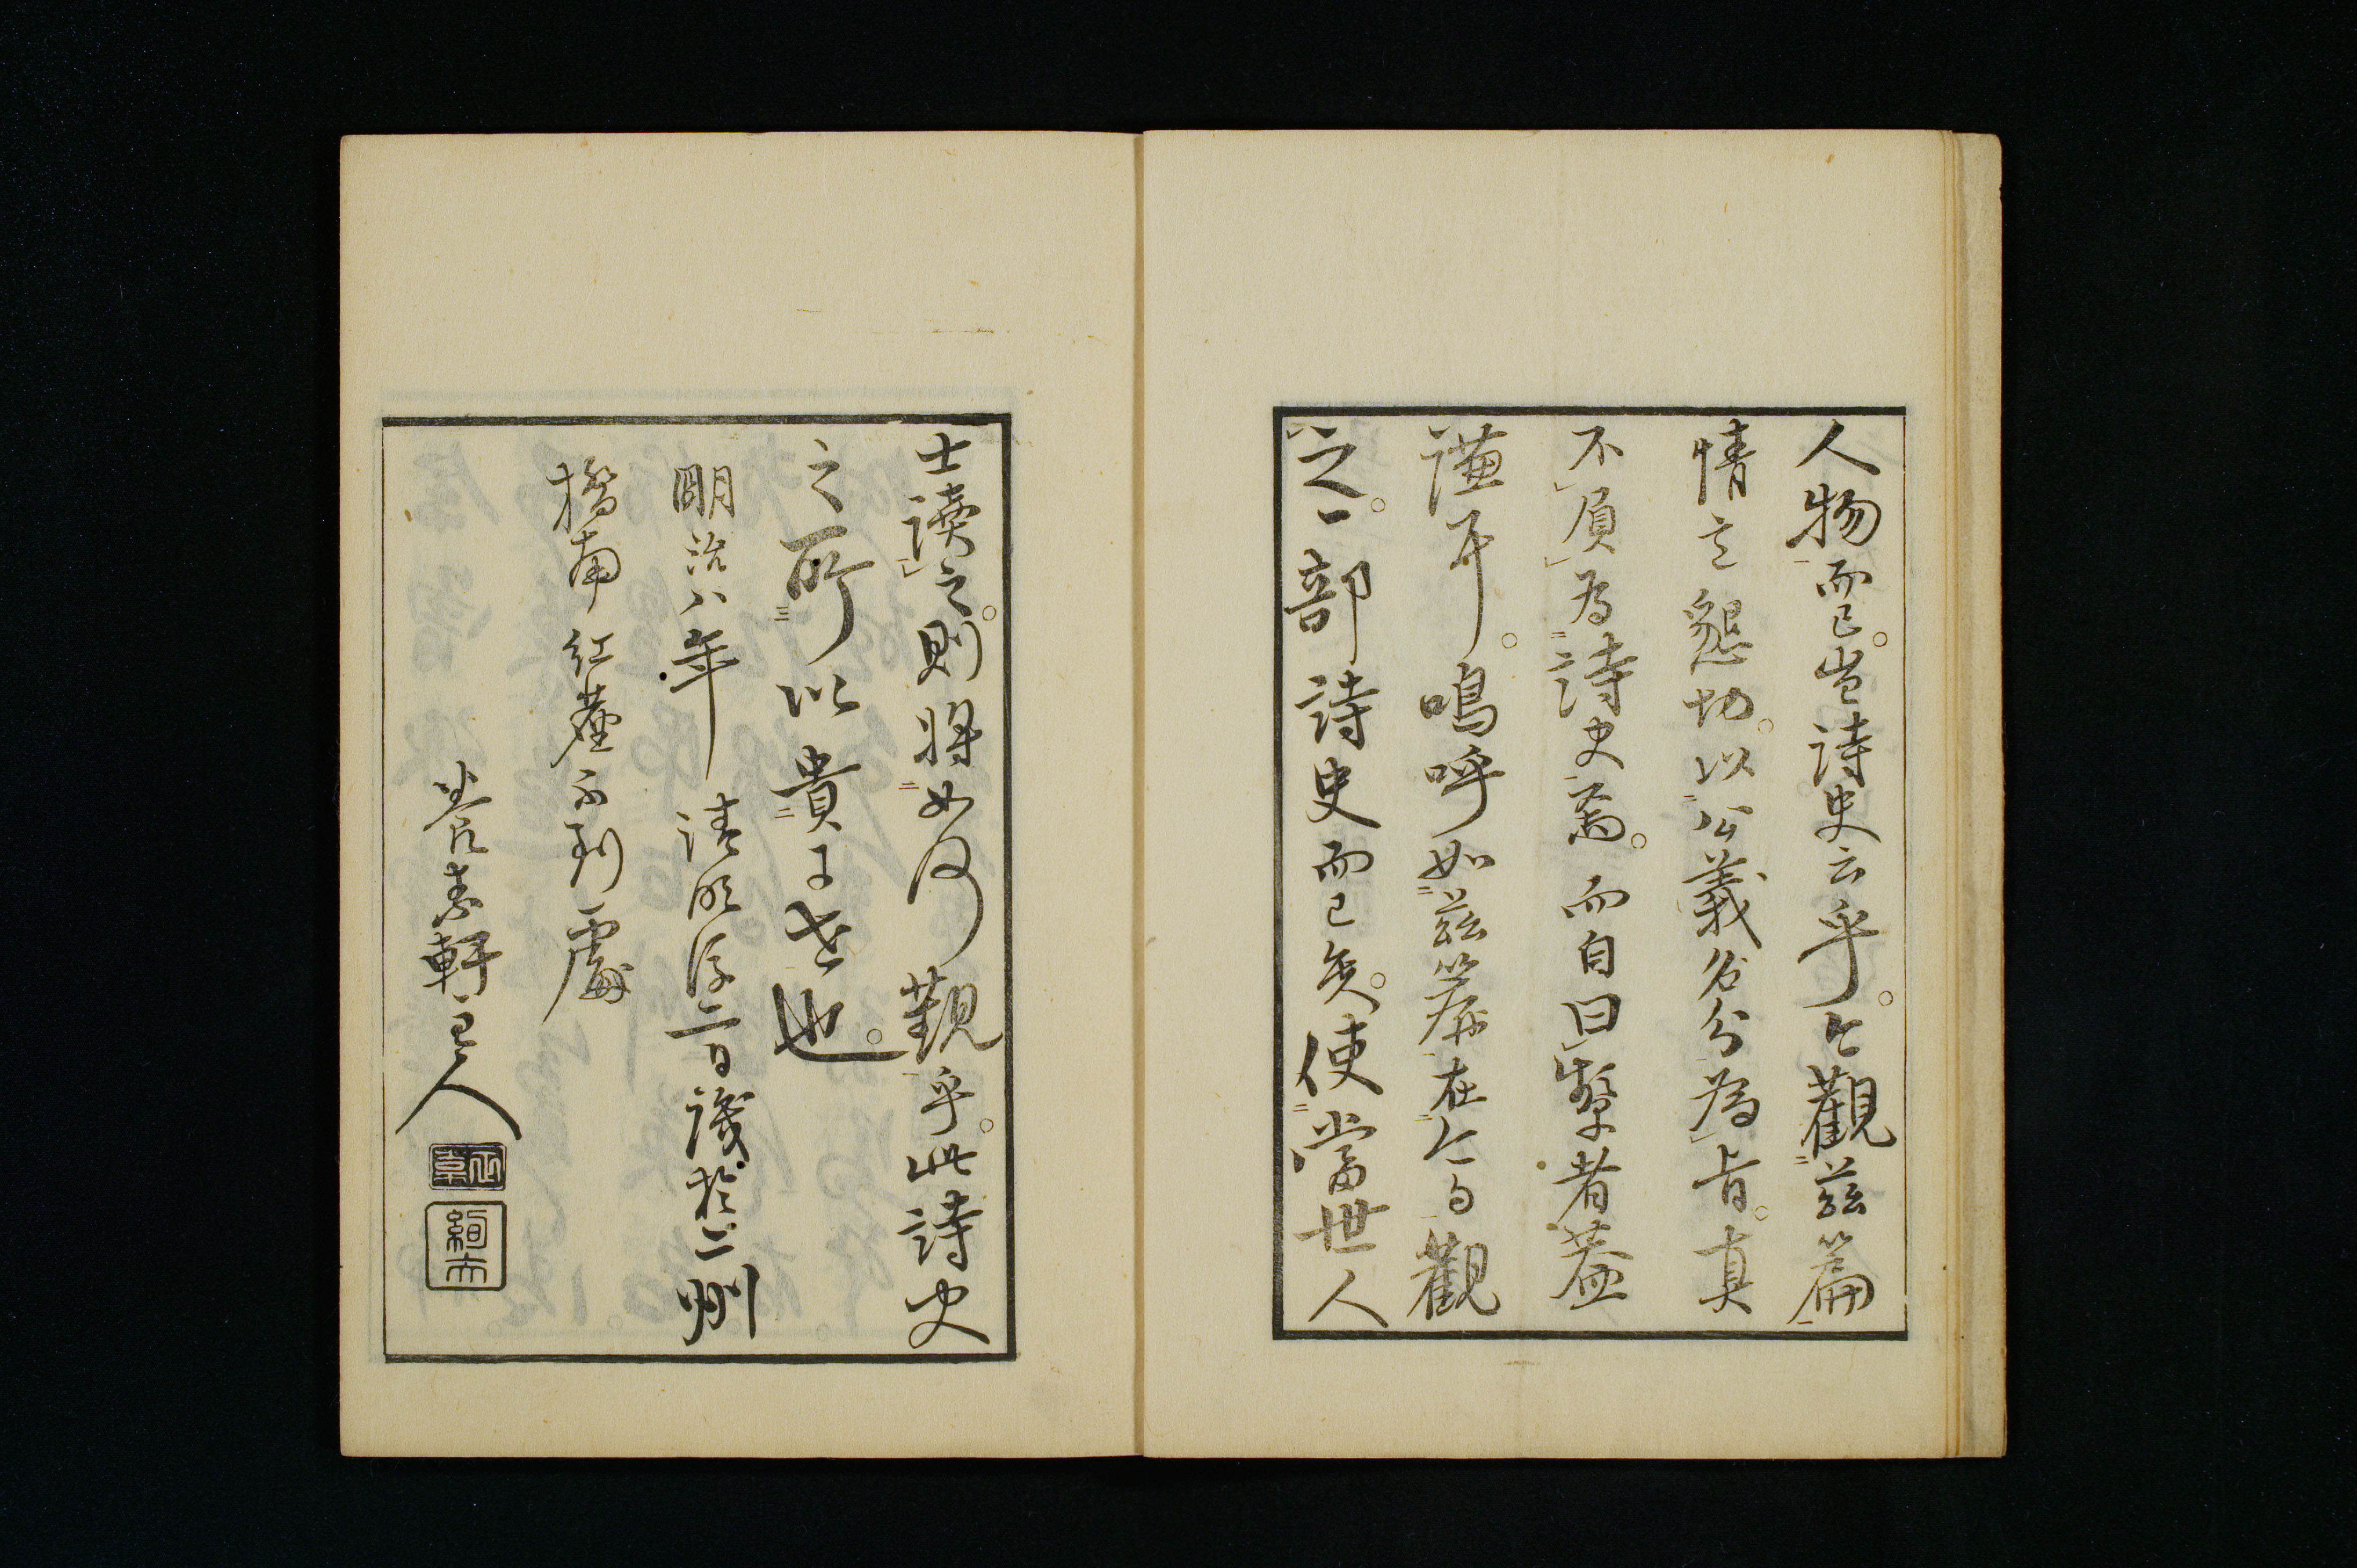 人物而已豈詩史云乎今觀茲篇
情之懇切以公義名分為旨真
不負為詩史焉而自曰繋者蓋
謙耳嗚呼如茲等在今日觀
之一部詩史而已矣使當世人
士讀之則將如何觀乎此詩史
之所以貴于世也
明治八年清明後二日識於二州
橋南紅塵不到處
養素軒主人